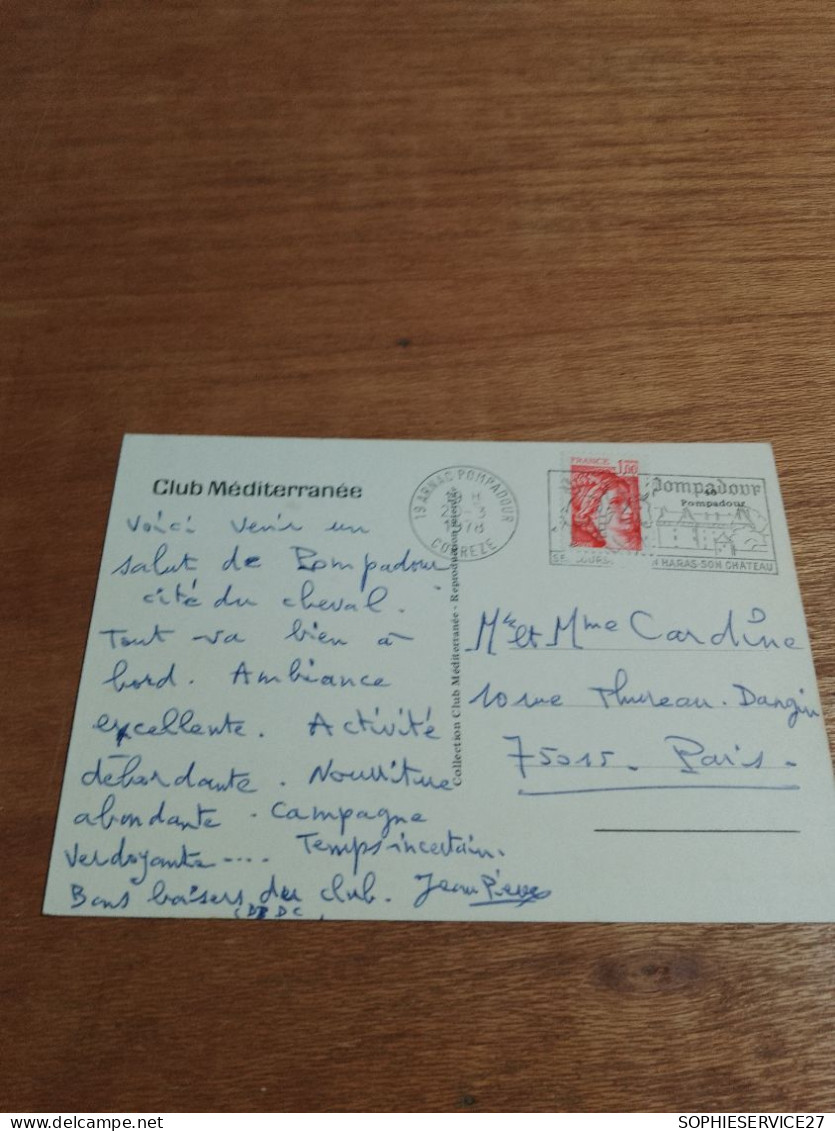 Club Méditerranée
Voici venir un
salut de Pompadour
cité du cheval.
Tout va bien à
bord. Ambiance
excellente. Activité
débordante. Nourriture
abondante. Campagne
verdoyante.... Temps incertain.
Bons baisers du club. Jean Pierre
(DBDC)
Collection Club Méditerranée - Reproduction interdite
19 ARNAC POMPADOUR
CORREZE
1978
FRANCE
Pompadour
19
Pompadour
HARAS-SON CHATEAU
Mr et Mme Cardine
10 rue Thureau-Dangin
75015 - Paris -
SOPHIESERVICE27